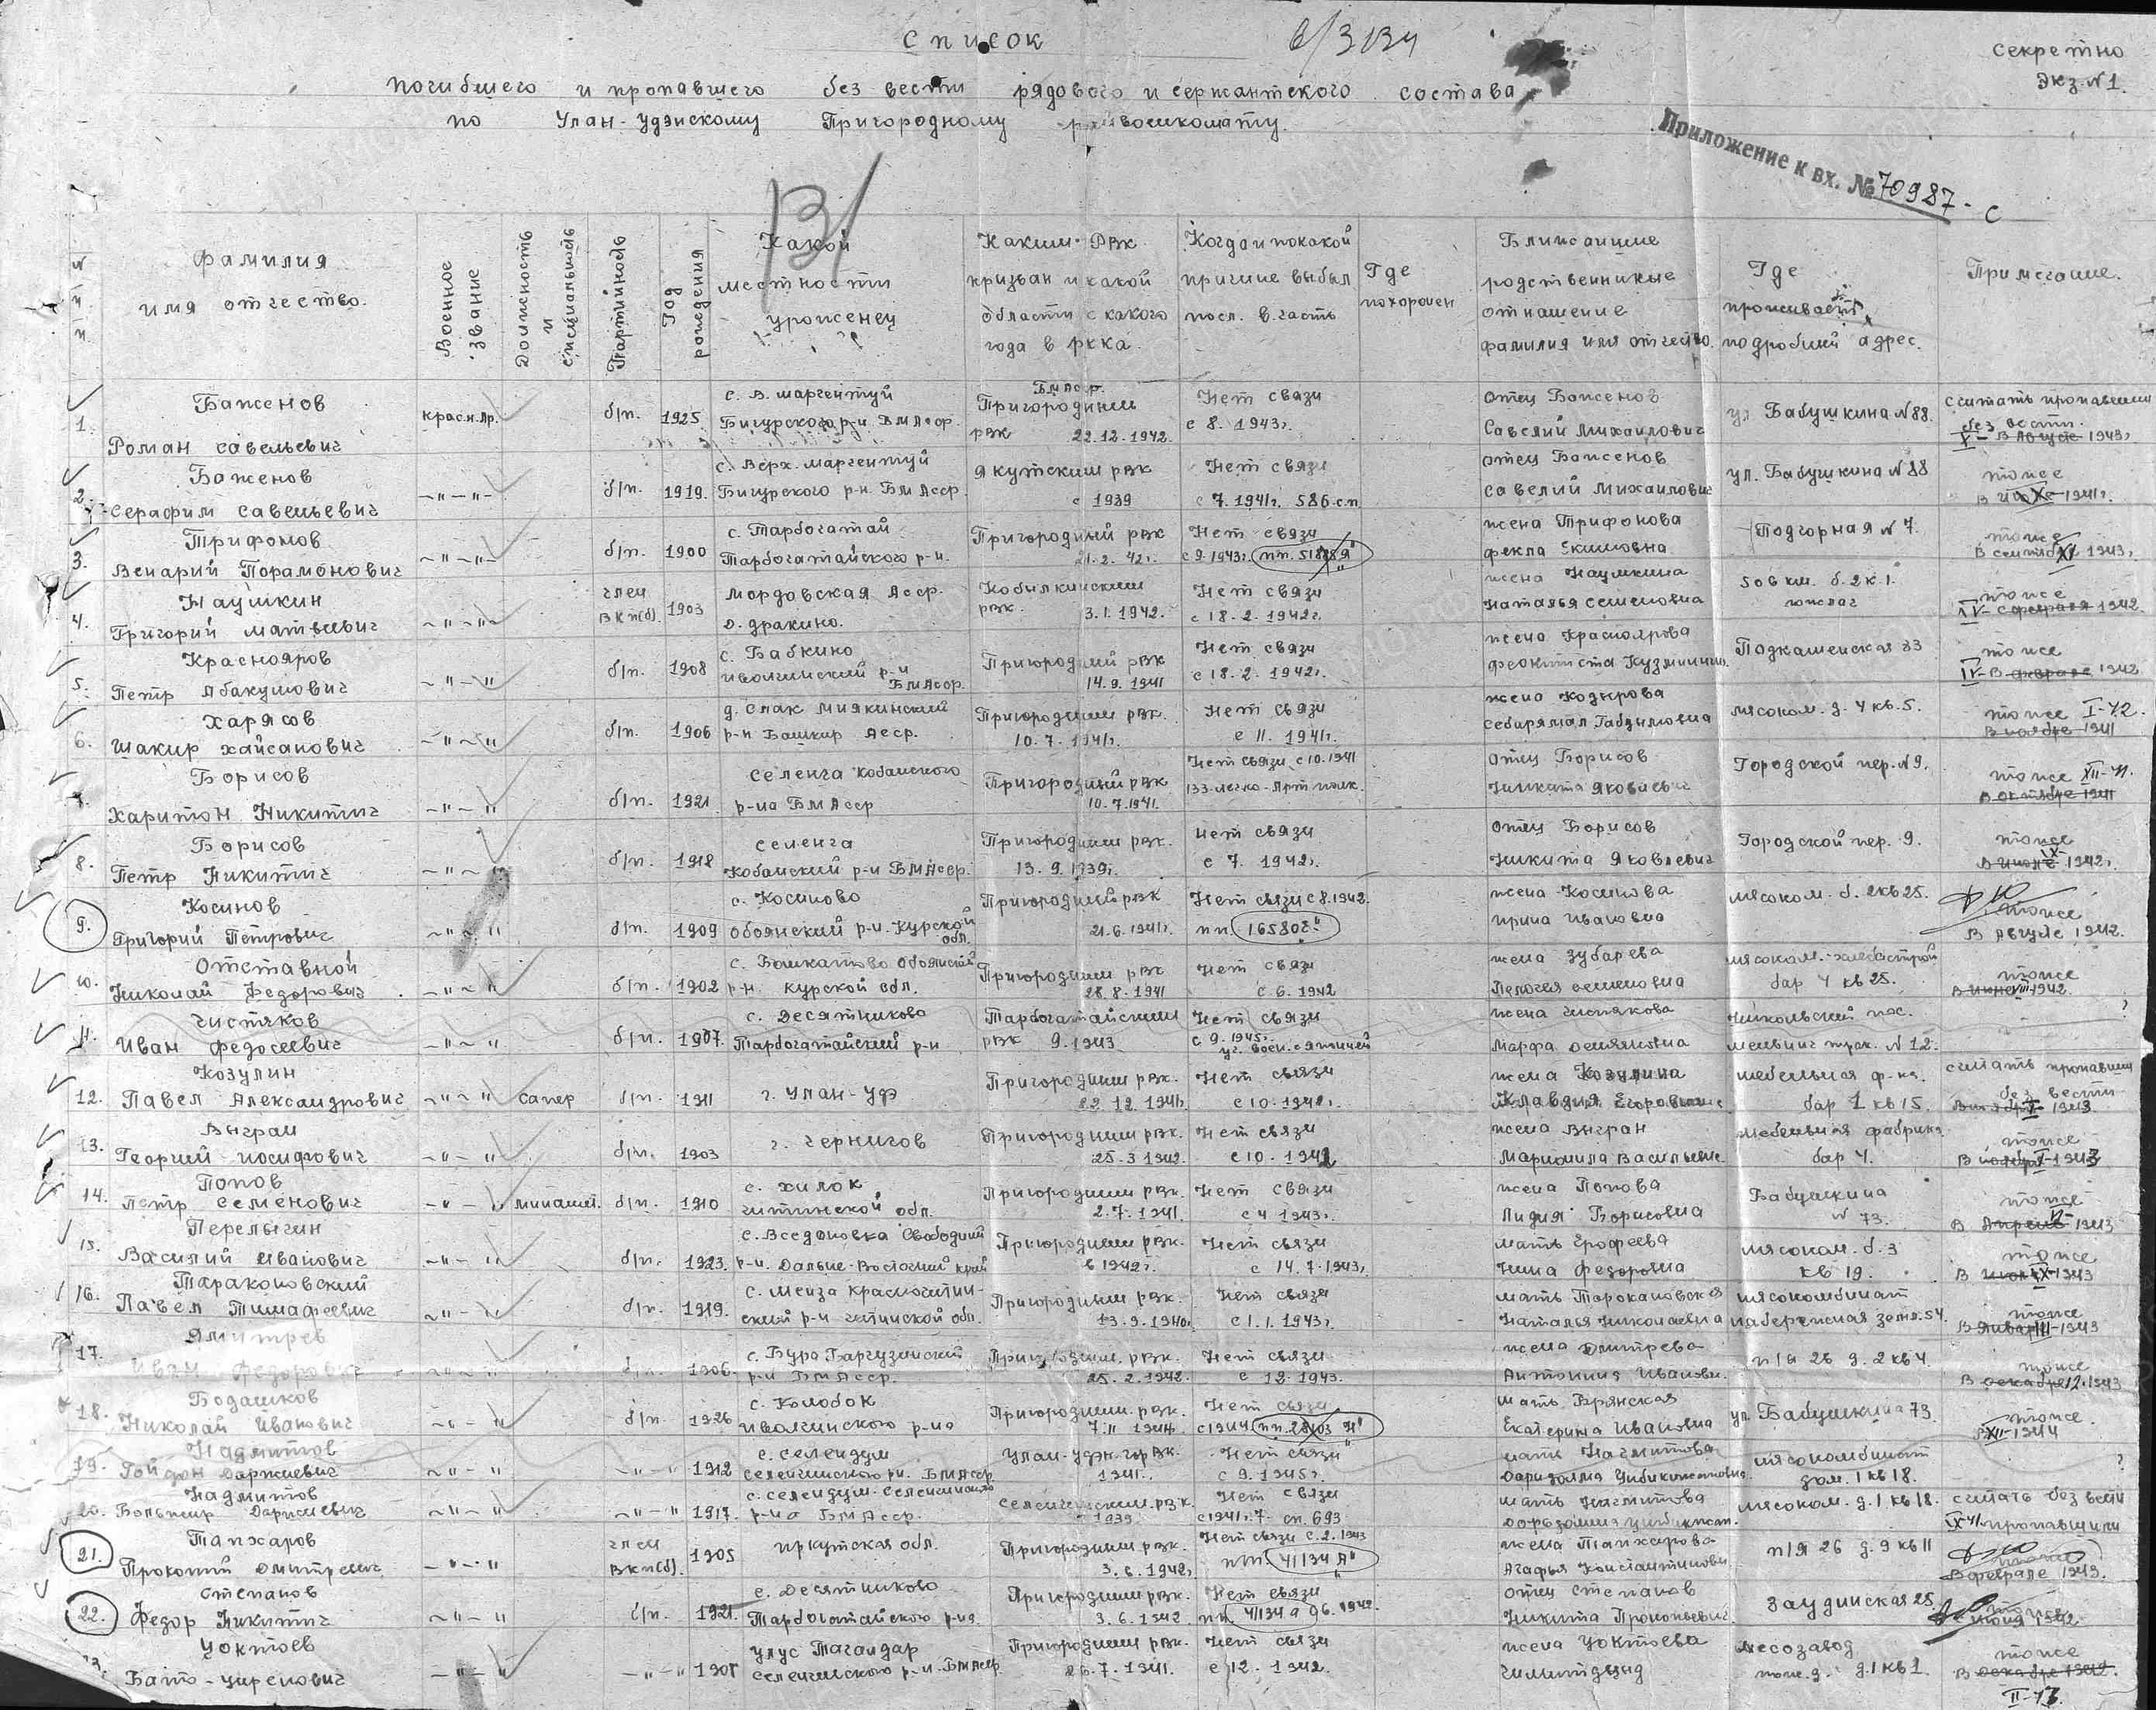 Список
6/3134
Секретно
Экз. N 1.
погибшего и пропавшего без вести рядового и сержантского состава
по Улан-Удэнскому Пригородному райвоенкомату.
Приложение к вх. № 70987-с
N п п
Фамилия имя отчество.
Военное звание
Должность и специальность
Партийность
Год рождения
Какой местности уроженец
Каким РВК призван и какой области с какого года в РККА.
Когда и по какой причине выбыл посл. в. часть
Где похоронен
Ближайшие родственники отношение фамилия имя отчество.
Где проживает подробный адрес.
Примечание.
1. Баженов Роман Савельевич красн.Ар. б/п. 1925 с. В. Маргентуй Бигурского р-н БМАССР. БМАССР. Пригородным РВК 22.12.1942. Нет связи с 8. 1943г. отец Баженов Савелий Михаилович ул Бабушкина N 88. считать пропавшим без вести X- в Августе 1943г
2. Баженов Серафим Савельевич -"-"- б/п. 1919. с. Верх. Маргентуй Бигурского р-н. БМАССР Якутским РВК с 1939 Нет связи с 7. 1941г. 586 с.п. отец Баженов Савелий Михаилович ул. Бабушкина N 88 тоже 1941г.
3. Трифонов Порамонович -"-"- б/п. 1900 с. Тарбогатай Тарбогатайского р-н. Пригородный РВК 21.2.42г. Нет связи с 9.1943г. пп. жена Трифонова Фекла Екимовна Подгорная N 7. тоже XI 1943г.
4. Наушкин Григорий Матвеевич -"-"- член ВКП(б). 1903 Мордовская АССР. д. Дракино. РВК. 3.1.1942. Нет связи с 18.2.1942г. жена Наушкина Наталья Семеновна 506 км. б. 2 к. 1. тоже IV- с февраля 1942
5. Краснояров Петр Абакумович -"-" б/п. 1908 с. Бабкино Иволгинский р-н БМАССР. Пригородный РВК 14.9.1941 Нет связи с 18.2.1942г. жена Красноярова Феоктиста Кузминичн. тоже IV- в феврале 1942
6. Харясов Шакир -"-" б/п. 1906 д. Слак Миякинский р-н Башкир АССР. Пригородным РВК. 10.7.1941г. Нет связи с 11. 1941г. жена Кодырова мясоком. д. 4 кв. 5. тоже I-42. в ноябре 1941
7. Борисов Харитон Никитич -"-" б/п. 1921 Селенга Кобанского р-на БМАССР Пригородный РВК 10.7.1941. Нет связи с 10.1941 133 легко-Арт полк. отец Борисов Никита Яковлевич Городской пер. N 9. тоже XII-41. в октябре 1941
8. Борисов Петр Никитич -"-" б/п. 1918 Селенга Кобанский р-н БМАССР. Пригородным РВК. 13.9.1939г. Нет связи с 7. 1942г. отец Борисов Никита Яковлевич Городской пер. 9. тоже IX- 1942г.
9. Косинов Григорий Петрович -"-" б/п. 1909 с. Косиново Обоянский р-н. Курской обл. Пригородный РВК 21.6.1941г. Нет связи с 8.1942. пп 16580 жена Косинова Ирина Ивановна мясоком. б. 2 кв 25. тоже в Августе 1942.
10. Отставной Николай Федорович -"-" б/п. 1902 с. Башкатово Обоянский р-н. Курской обл. Пригородным РВК 28.8.1941 Нет связи с 6. 1942 жена Зубарева Пелогея Семеновна мясоком. бар 4 кв 25. тоже в июне VIII-1942.
11. Чистяков Иван Федосеевич -"-" б/п. 1907. с. Десятниково Тарбогатайский р-н Тарбогатайским РВК 9.1943 Нет связи с 9.1945г. жена Чистякова Марфа Никольский пос. N 12. ?
12. Козулин Павел Александрович -"-" сапер б/п. 1911 г. Улан-Удэ Пригородным РВК. 22.12.1941г. Нет связи с 10.1942г. жена Козулина Клавдия Егоровна мебельная ф-ка. бар 1 кв 15. считать пропавшим без вести I- 1943
13. Выгран Георгий Иосифович -"-" б/п. 1903 г. Чернигов Пригородным РВК. 25.3.1942. Нет связи с 10. 1942 жена Выгран Васильевн. мебельная фабрика бар 4. тоже I-1943
14. Попов Петр Семенович -"-" б/п. 1910 с. Хилок Читинской обл. Пригородным РВК. 2.7.1941. Нет связи с 4 1943г. жена Попова Лидия Борисовна Бабушкина N 73. тоже в Апреле VI- 1943
15. Перелыгин Василий Иванович -"-" б/п. 1923. Свободный р-н. Дальне-Восточный край Пригородным РВК. в 1942г. Нет связи с 14.7.1943г. мать Ерофеева Нина Федоровна мясоком. б. 3 кв 19. тоже IX-1943
16. Таракановский Павел Тимафеевич -"-" б/п. 1919. с. Менза Красночитинский р-н Читинской обл. Пригородным РВК. 13.9.1940г. Нет связи с 1.1.1943г. мать Таракановская Наталья Николаевна мясокомбинат набережная земл. 54. тоже в январе III-1943
17. Дмитрев Иван Федорович б/п. 1906. с. Бура Баргузинский р-н БМАССР. Пригородным. РВК. 25.2.1942. Нет связи с 12.1943. жена Дмитрева Антонина Ивановн. п/я 26 д. 2 кв 4. тоже в декабре 12.1943
18. Бодашков Николай Иванович -"-" б/п. 1926 с. Колобок Иволгинского р-на Пригородным. РВК. Нет связи с 1944 пп. 28103 "И" мать Брянская Екатерина Ивановна ул. Бабушкина 73. тоже. XII-1944
19. Надмитов Даржиевич -"-" -"-" 1912 с. Селендум Селенгинского р-н. БМАССР Улан-Удэн. гор ВК. 1941г. Нет связи с 9.1945г. мать Нагмитова мясокомбинат дом. 1 кв 18. ?
20. Надмитов Даржиевич -"-" -"-" 1917. с. Селендум. Селенгинского р-на БМАССР. Селенгинским. РВК. 1939 Нет связи с 1941г. 7. сп. 693 мать Нагмитова мясоком. д. 1 кв 18. считать без вести IX 41. пропавшим
21. Танхаров Прокопий Дмитревич -"-" член ВКП(б). 1905 Иркутская обл. Пригородным РВК. 3.6.1942г. Нет связи с 2.1943 пп. 41134 А" жена Танхарова Агафья Константиновн п/я 26 д. 9 кв 11 тоже в феврале 1943.
22. Степанов Федор Никитич -"-" б/п. 1921. с. Десятниково Тарбогатайского р-на Пригородным РВК. 3.6.1942 Нет связи пп. 41134 а 96. 1942. отец Степанов Никита Прокопьевич Заудинская 25. тоже 1942
23. Цоктоев Бато-Цыренович -"-" -"-" улус Тагандар Селенгинского р-н. БМАССР Пригородным РВК. 26.7.1941. Нет связи с 12. 1942. жена Цоктоева Чимитдыжид лесозавод д. 1 кв 1. тоже в декабре 1942. II-43.